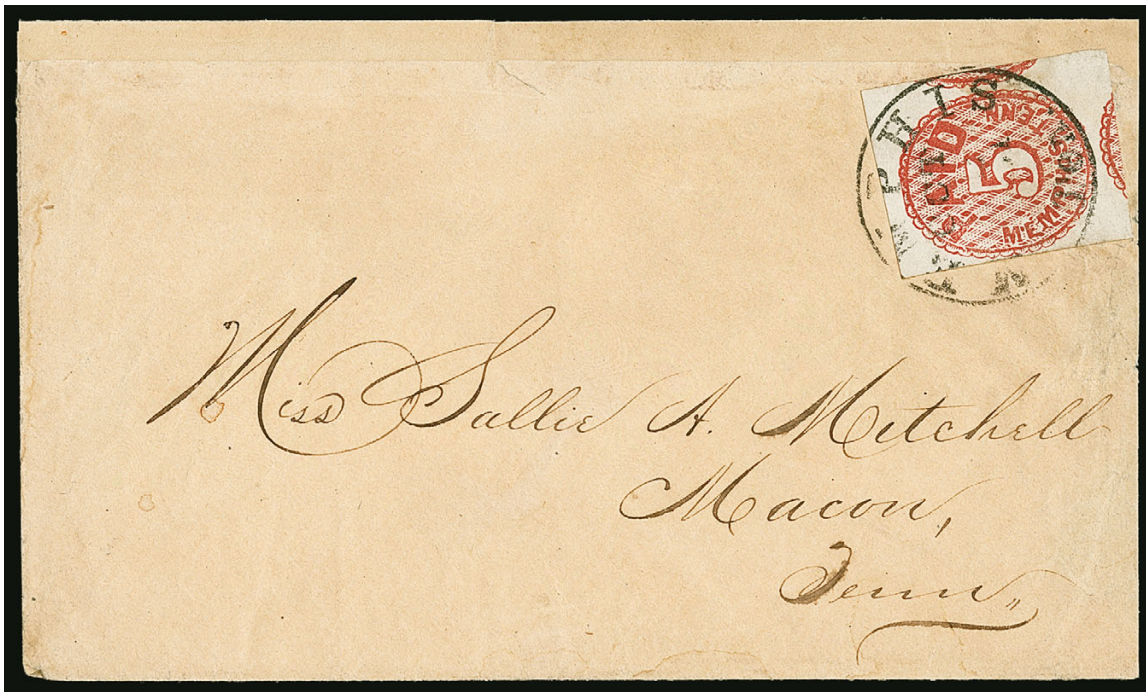 PAID
5
MEMPHIS, TENN
Miss Sallie A. Mitchell
Macon,
Tenn,,